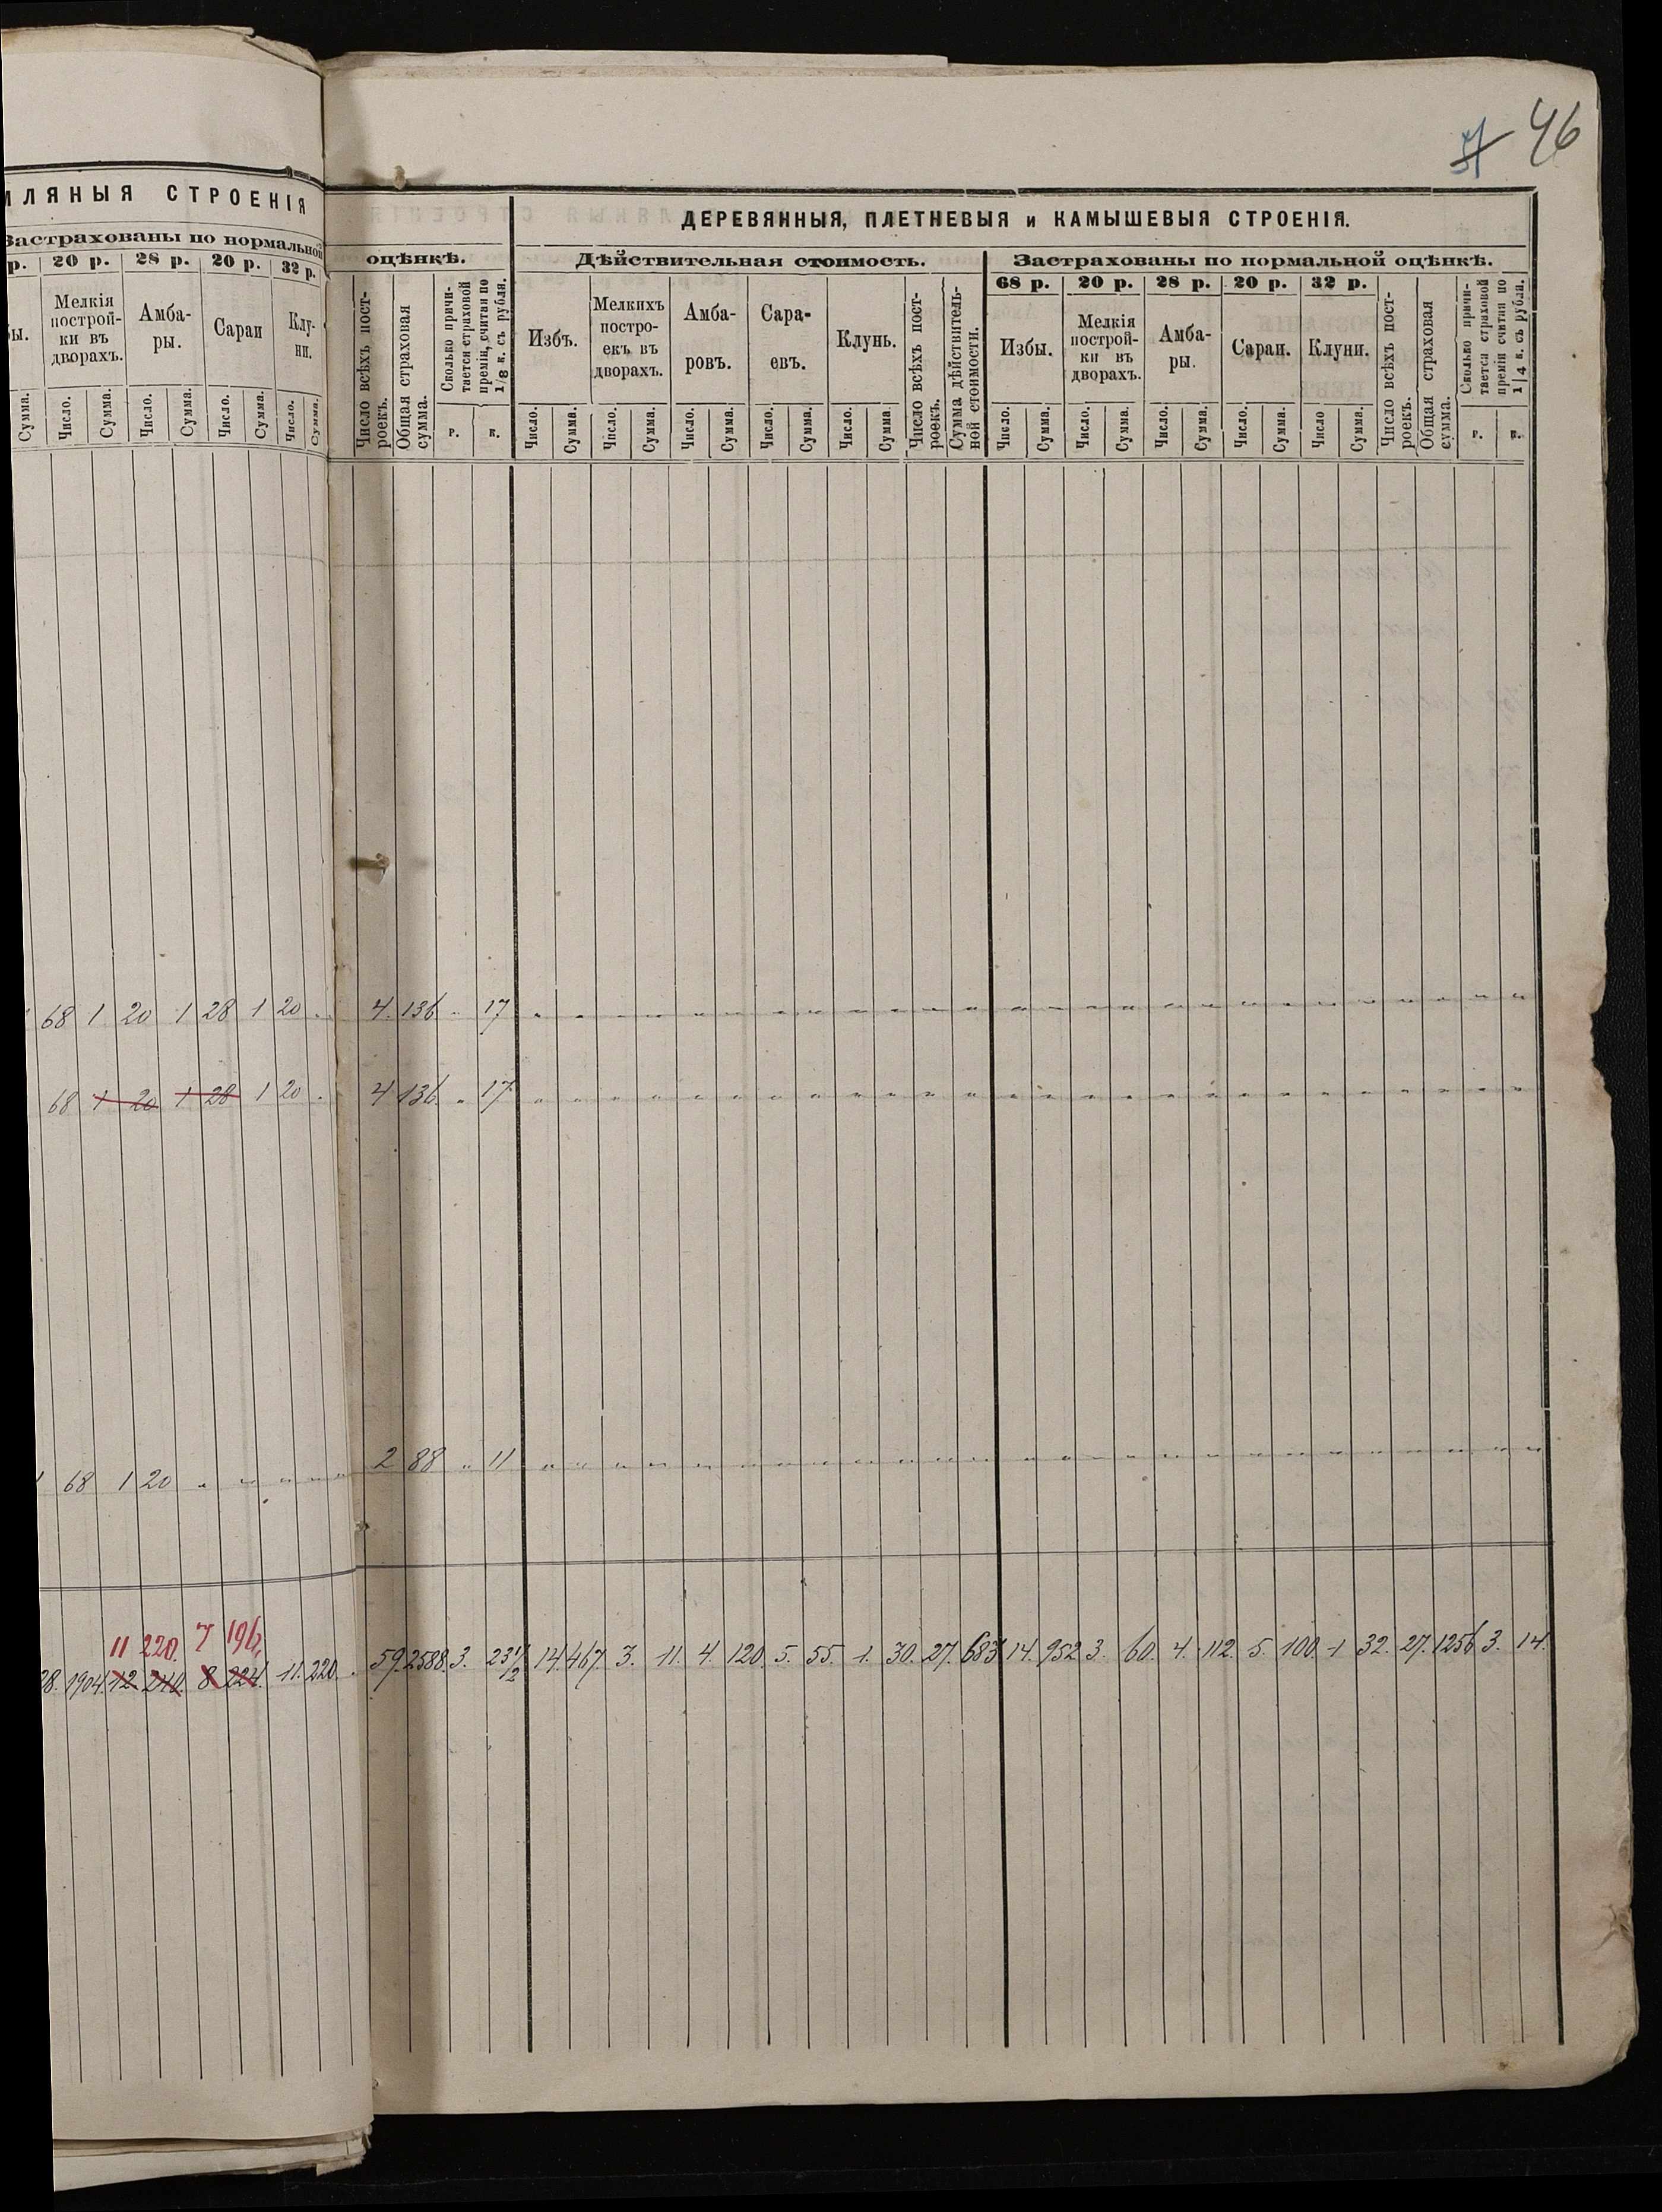 46
МЛЯНЫЯ СТРОЕНІЯ
Застрахованы по нормальной
р. 20 р. 28 р. 20 р. 32 р.
бы. Мелкія построй-ки въ дворахъ. Амба-ры. Сараи Клу-ни.
Сумма. Число. Сумма. Число. Сумма. Число. Сумма. Число. Сумма.
оцѣнкѣ.
Число всѣхъ пост-роекъ. Общая страховая сумма. Сколько причи-тается страховой преміи, считая по 1/8 к. съ рубля.
р. к.
ДЕРЕВЯННЫЯ, ПЛЕТНЕВЫЯ и КАМЫШЕВЫЯ СТРОЕНІЯ.
Дѣйствительная стоимость.
Избъ. Мелкихъ постро-екъ въ дворахъ. Амба-ровъ. Сара-евъ. Клунь. Число всѣхъ пост-роекъ. Сумма дѣйствитель-ной стоимости.
Число. Сумма. Число. Сумма. Число. Сумма. Число. Сумма. Число. Сумма.
Застрахованы по нормальной оцѣнкѣ.
68 р. 20 р. 28 р. 20 р. 32 р.
Избы. Мелкія построй-ки въ дворахъ. Амба-ры. Сараи. Клуни. Число всѣхъ пост-роекъ. Общая страховая сумма. Сколько причи-тается страховой преміи считая по 1/4 к. съ рубля.
Число. Сумма. Число. Сумма. Число. Сумма. Число. Сумма. Число Сумма. р. к.
68 1 20 1 28 1 20 4. 136 17
68 1 20 1 28 1 20 4 136. 17
1 68 1 20 2 88 11
11 220. 7 196.
28. 1904. 12 240. 8 224. 11. 220. 59. 2588. 3. 23 1/2 14. 467. 3. 11. 4. 120. 5. 55. 1. 30. 27. 683 14. 952 3. 60. 4. 112. 5. 100. 1 32. 27. 1256 3. 14.